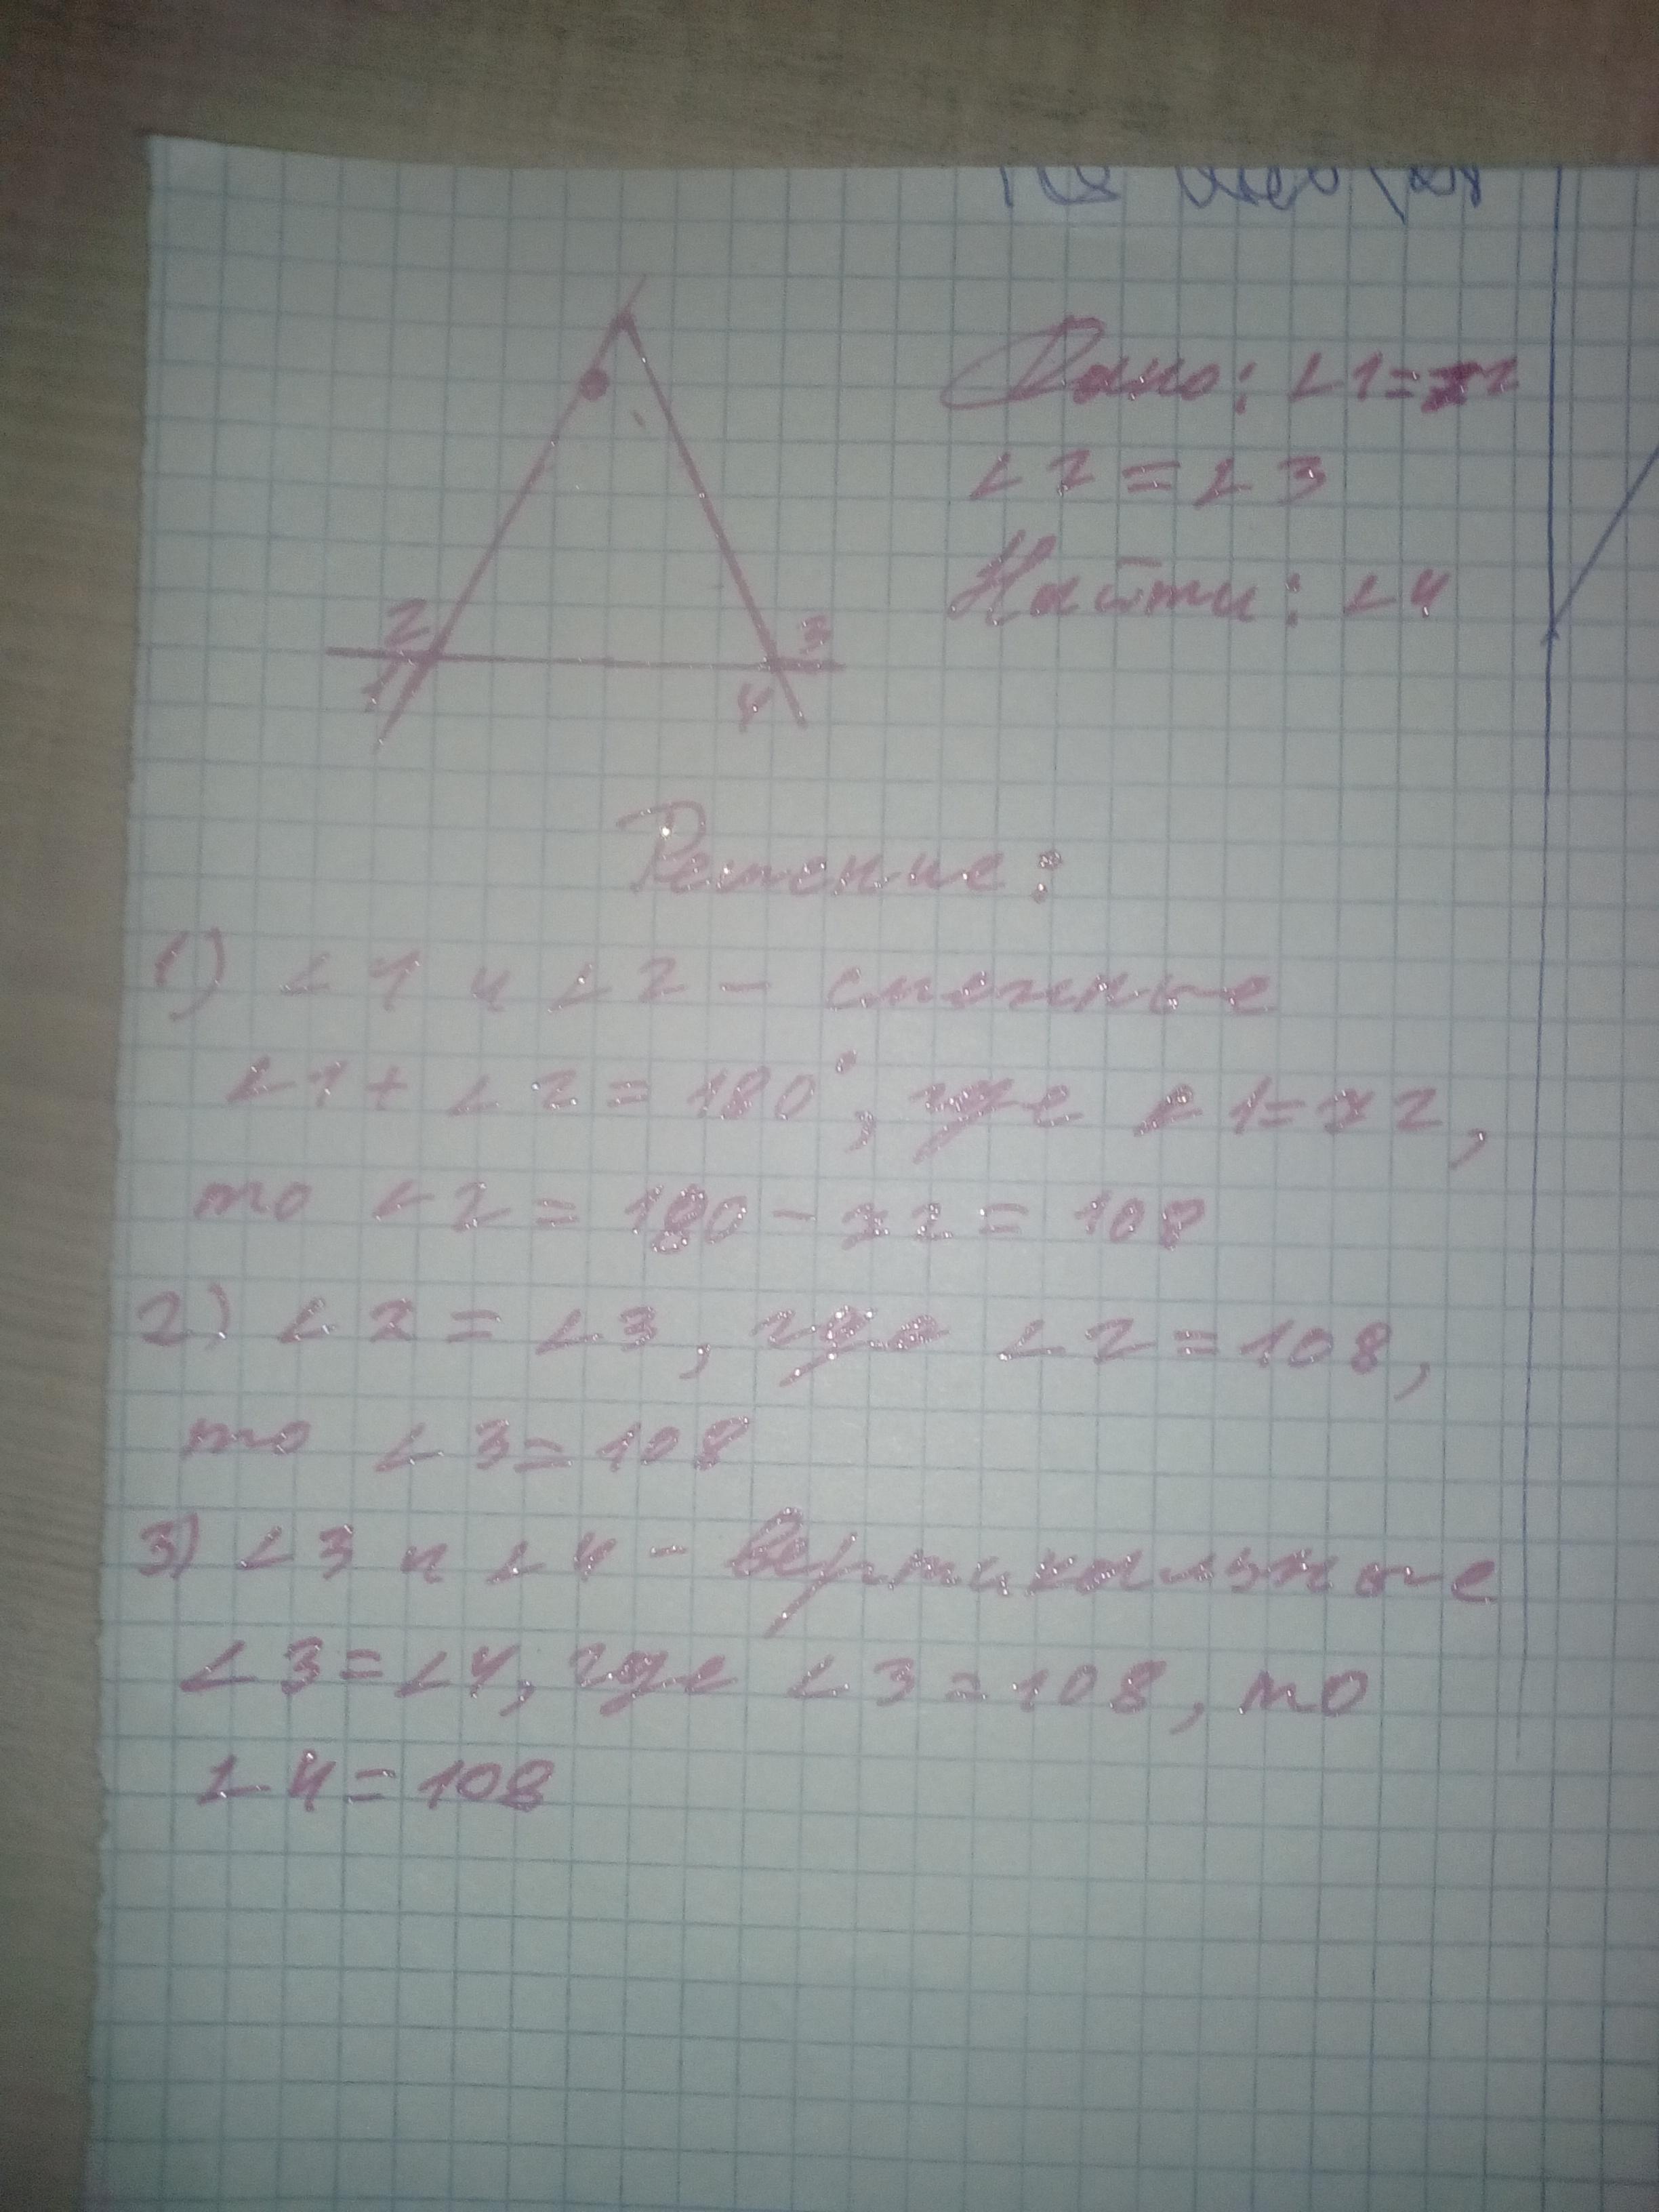 Дано: ∠1=72
∠2=∠3
Найти: ∠4
2
3
1
4
Решение:
1) ∠1 и ∠2 - смежные
∠1+∠2=180°, где ∠1=72,
то ∠2=180-72=108
2) ∠2=∠3, где ∠2=108,
то ∠3=108
3) ∠3 и ∠4 - вертикальные
∠3=∠4, где ∠3=108, то
∠4=108